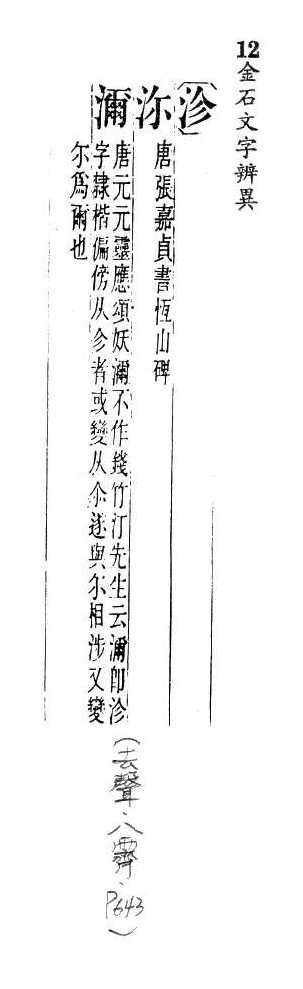 12金石文字辨異
〔沴〕
沵 唐張嘉貞書恆山碑
瀰 唐元元靈應頌妖瀰不作錢竹汀先生云瀰卽沴
字隸楷偏傍从㐱者或變从尒遂與尔相涉又變
尔爲爾也
(去聲.八霽.P643)